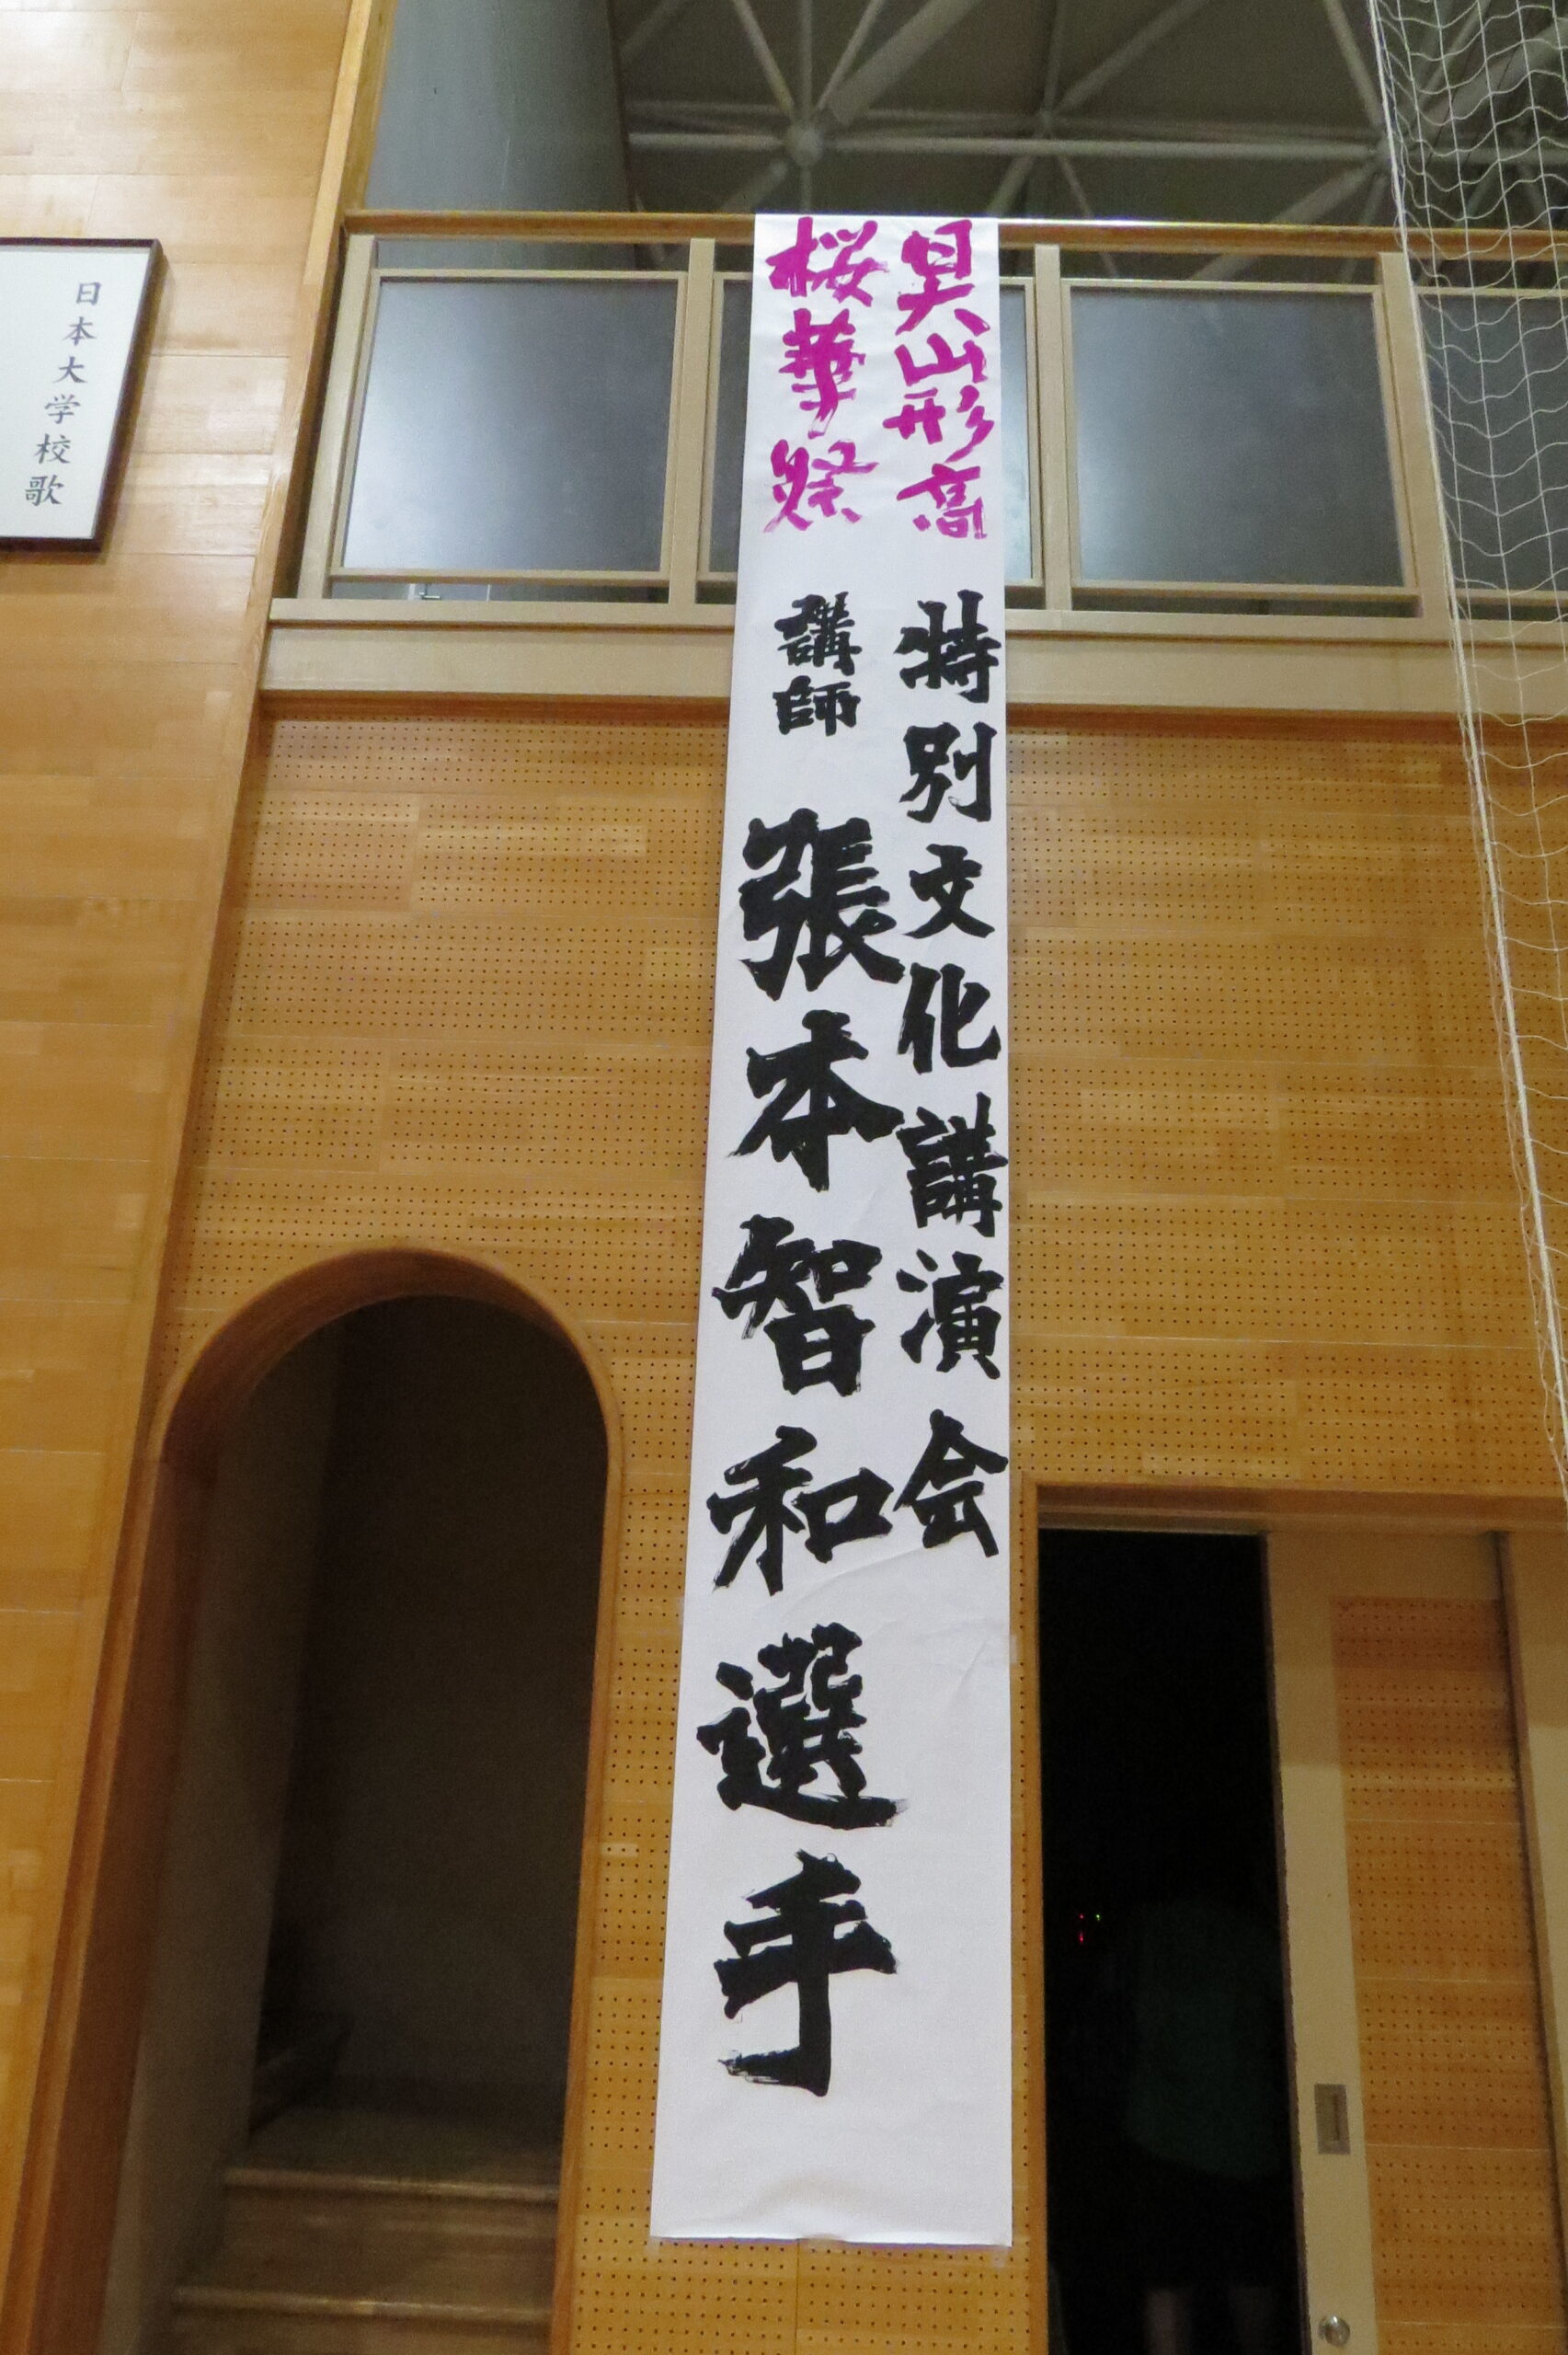 日大山形高
桜華祭
特別文化講演会
講師 張本智和選手
日本大学校歌